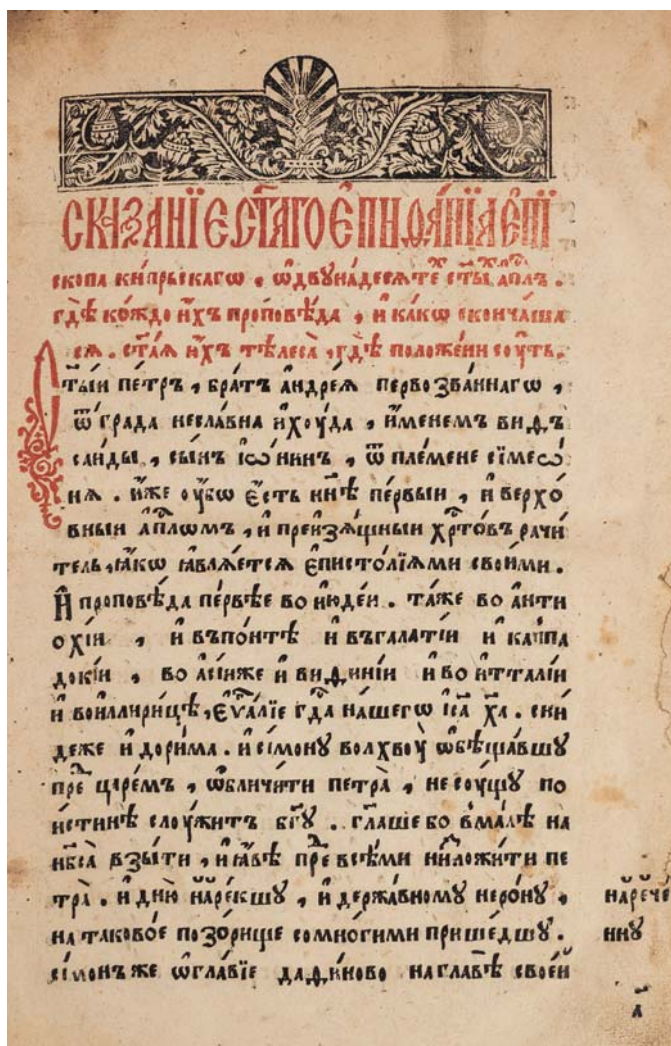 СКАЗАНЇЕ СТ҃АГО ЕПИФА́НЇА ЕПИ
скопа ки́прьскагѡ , ѡ҆двꙋна́десѧте ст҃ы́хъ а҆п҃лъ .
гдѣ̀ ко́ждо и҆́хъ проповѣ́да , и҆ ка́кѡ сконча́шѧ
сѧ . ст҃а́ѧ и҆́хъ тѣлеса̀ , гдѣ̀ положе́ни сꙋ́ть .
ст҃ы́и пе́тръ , бра́тъ а҆ндре́ѧ первозва́ннагѡ ,
ѿ гра́да несла́вна и҆хꙋ́да , и҆́менемъ виѳъ
саи́ды , сы́нъ і҆ѡ́нинъ , ѿ пле́мене сїмеѡ́
нѧ . и҆́же ᲂу҆́бѡ є҆́сть нн҃ѣ пе́рвыи , и҆ верхо́
вныи а҆п҃лѡмъ , и҆ преизѧ́щныи хр҃то́въ рачи́
тель , ꙗ҆́кѡ ꙗ҆влѧ́етсѧ є҆писто́лїѧми свои́ми .
И҆ проповѣ́да пе́рвѣе во и҆ꙋде́и . та́же во а҆нти
охі́и , и҆ въпо́нтѣ и҆ въгала́тїи и҆ каппа
докі́и , во а҆сі́иже и҆ виѳині́и и҆ во и҆тталі́и
и҆ воиллири́цѣ , є҆ѵⷢ҇а́лїе гд҃а на́шегѡ і҆с҃а хр҃а . ски
деже и҆ дори́ма . и҆ сі́монꙋ волхвꙋ̀ ѡ҆бѣща́вшꙋ
пре цр҃е́мъ , ѡ҆бличи́ти петра̀ , несꙋ́щꙋ по
и́стинѣ слꙋ́житъ бг҃ꙋ . гл҃аше бо вма́лѣ на
нб҃са̀ взы́ти , и҆ ꙗ҆́вѣ пре всѣ́ми ни́зложити пе
тра̀ . и҆ дню̀ наре́кшꙋ , и҆ держа́вномꙋ неро́нꙋ , наре́че
на таково́е позо́рище сомно́гими прише́дшꙋ . ннꙋ
сі́монъ же ѡ҆гла́вїе даѳи́ново на главѣ̀ свое́й
а҃